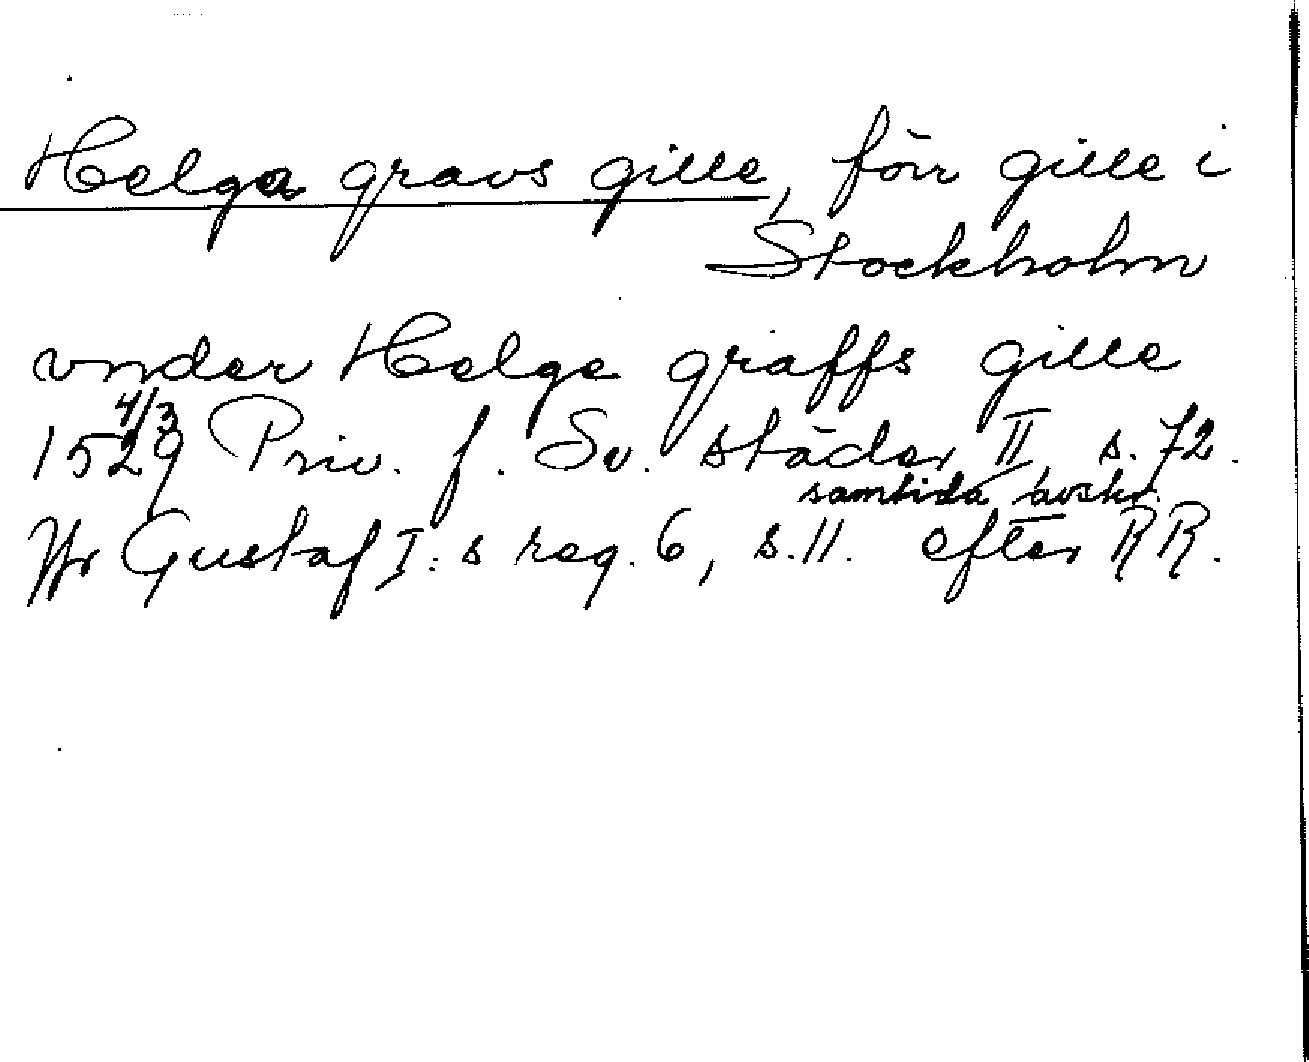 Helga gravs gille, förr gille i
Stockholm
vnder Helge graffs gille
4/3
1529 Priv. f. Sv. städer II, s. 72.
samtida avskr.
Jfr Gustaf I:s reg. 6, s. 11. efter RR.